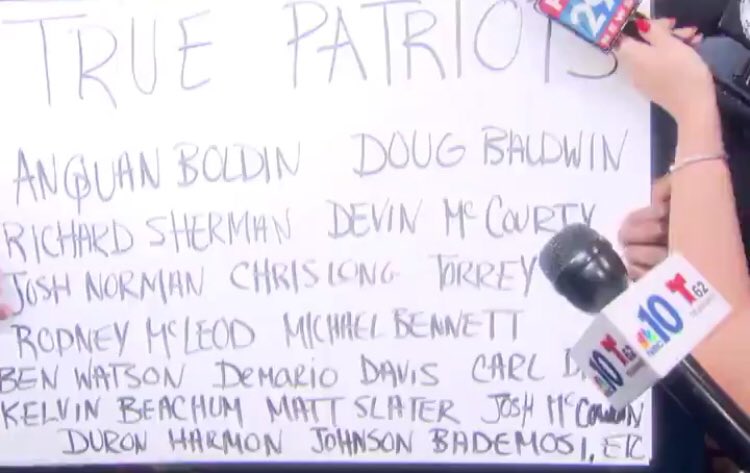 TRUE PATRIOTS
ANQUAN BOLDIN DOUG BALDWIN
RICHARD SHERMAN DEVIN McCOURTY
JOSH NORMAN CHRIS LONG TORREY
RODNEY McLEOD MICHAEL BENNETT
BEN WATSON DeMARIO DAVIS CARL
KELVIN BEACHUM MATT SLATER JOSH McCOWN
DURON HARMON JOHNSON BADEMOSI, ETC
10 T 62
NBC 10 T 62